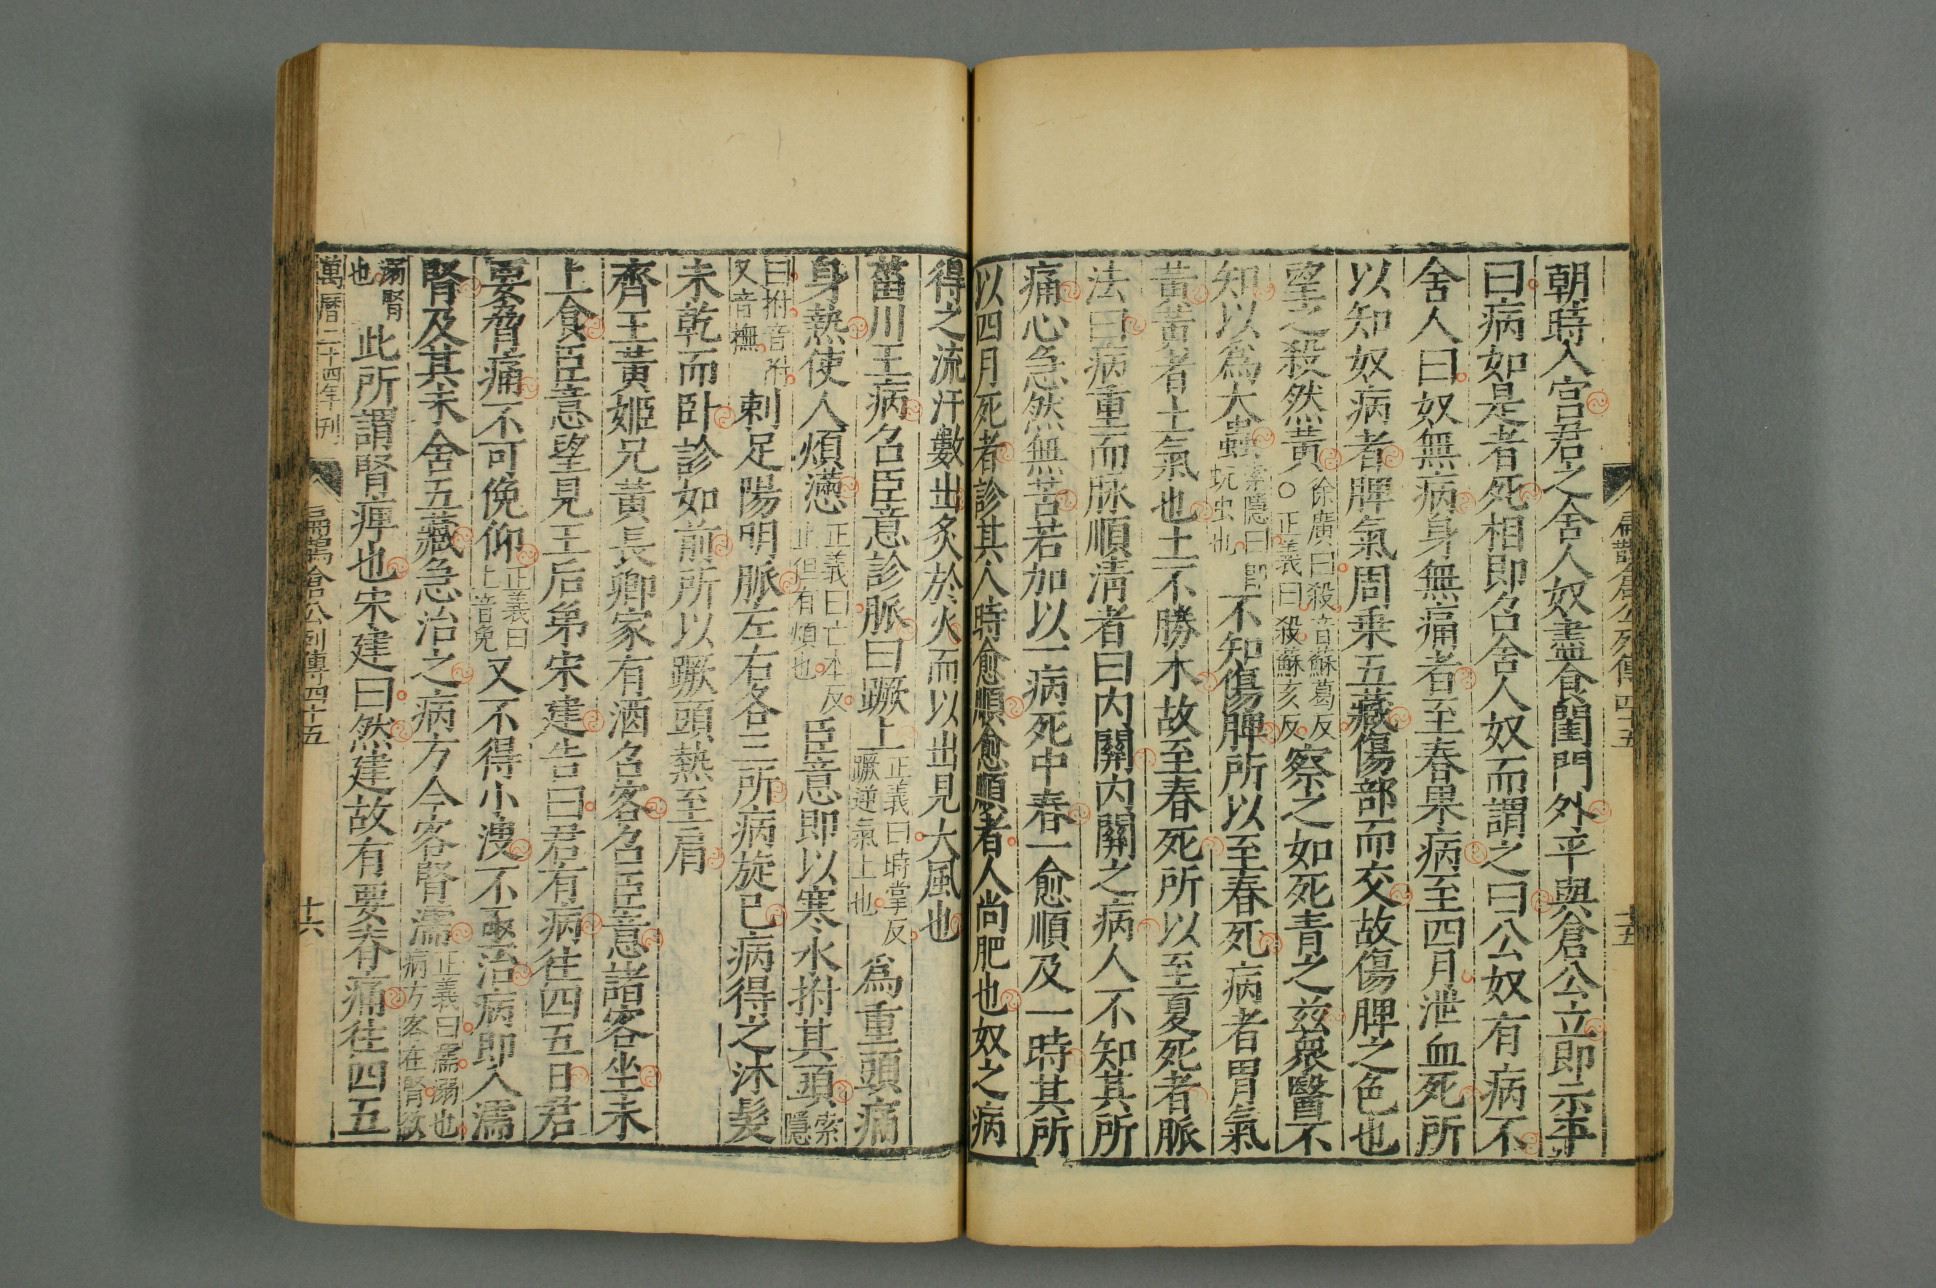 朝時入宮君之舍人奴盡食閨門外平與倉公立即示平
曰病如是者死相即召舍人奴而謂之曰公奴有病不
舍人曰奴無病身無痛者至春果病至四月泄血死所
以知奴病者脾氣周乗五藏傷部而交故傷脾之色也
望之殺然黃徐廣曰殺音蘇葛反○正義曰殺蘇亥反察之如死青之玆衆醫不
知以爲大蟲索隱曰即蚖虫也不知傷脾所以至春死病者胃氣
黃黃者土氣也土不勝木故至春死所以至夏死者脈
法曰病重而脉順清者曰内關内關之病人不知其所
痛心急然無苦若加以一病死中春一愈順及一時其所
以四月死者診其人時愈順愈順者人尚肥也奴之病
得之流汗數出炙於火而以出見大風也
菑川王病召臣意診脈曰蹶上正義曰時掌反蹶逆氣上也爲重頭痛
身熱使人煩懣正義曰亡本反止但有煩也臣意即以寒水拊其頭索隱
曰拊音附又音撫刺足陽明脈左右各三所病旋已病得之沐髮
未乾而卧診如前所以蹶頭熱至肩
齊王黃姬兄黃長卿家有酒召客召臣意諸客坐未
上食臣意望見王后弟宋建告曰君有病往四五日君
要脅痛不可俛仰正義曰上音免又不得小溲不亟治病即入濡
腎及其未舍五藏急治之病方今客腎濡正義曰濡溺也病方客在腎欲
溺腎也此所謂腎痺也宋建曰然建故有要脊痛往四五
扁鵲倉公列傳四十五
十五
萬曆二十四年刊
扁鵲倉公列傳四十五
十六